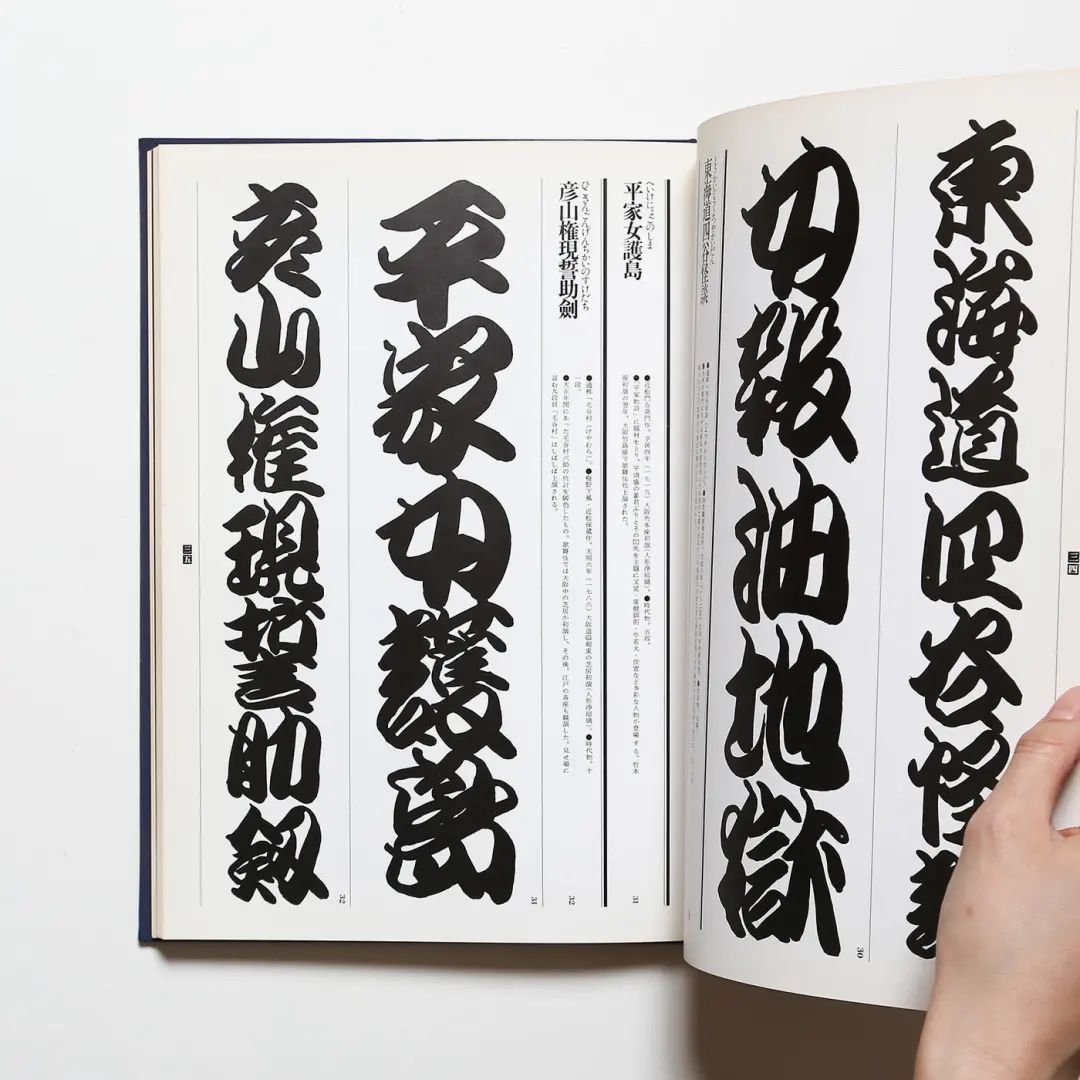 三四
東海道四谷怪談
女殺油地獄
30
東海道四谷怪談
へいけにょごのしま
平家女護島
●近松門左衛門作。享保四年(一七一九)大阪竹本座初演(人形浄瑠璃)。●時代物。五段。
●「平家物語」に題材をとり、平清盛の暴君ぶりとその悶死を主題に文覚・常盤御前・牛若丸・俊寛など多彩な人物が登場する。竹本
座初演の翌年、大阪竹島座で歌舞伎化上演された。
31
ひこさんごんげんちかいのすけだち
彦山権現誓助劍
●通称「毛谷村(けやむら)」。●梅野下風・近松保蔵作。天明六年(一七八六)大阪道頓堀東の芝居初演(人形浄瑠璃)。●時代物。十
一段。
●天正年間にあった毛谷村六助の仇討を脚色したもの。歌舞伎では大阪中の芝居が初演し、その後、江戸の各座も競演した。見せ場に
富む九段目「毛谷村」はしばしば上演される。
32
平家女護島
31
彦山権現誓助劍
32
三五